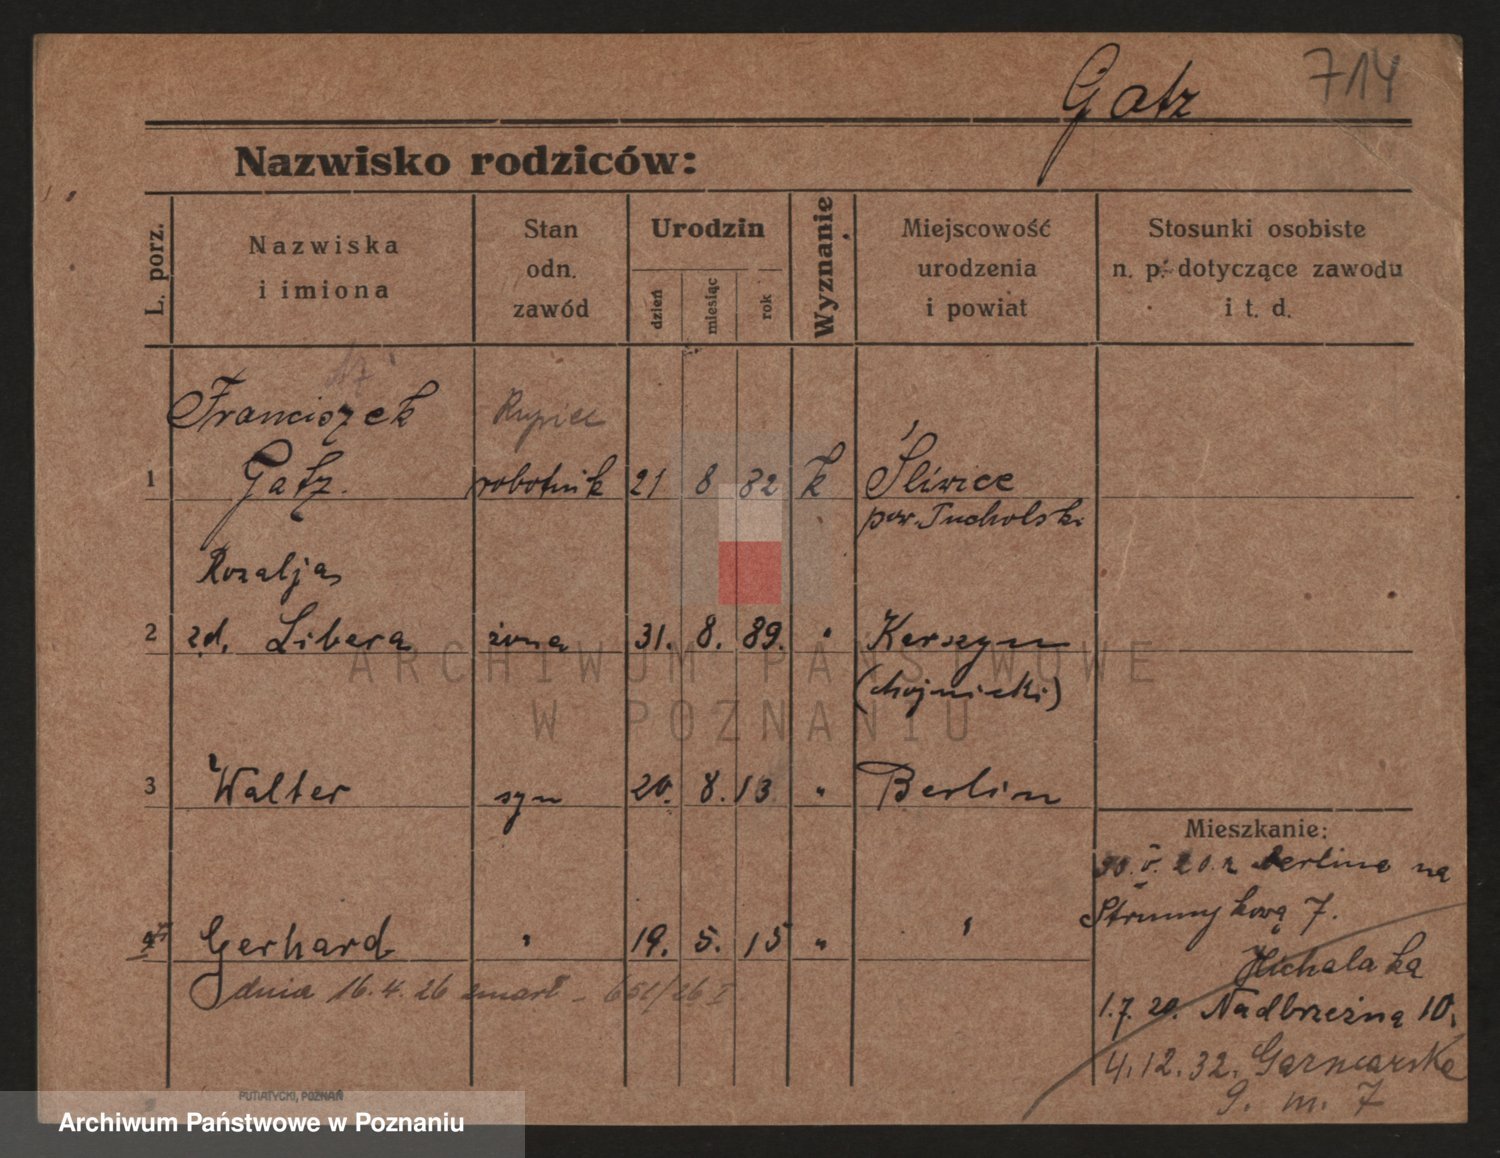 714
Gatz
Nazwisko rodziców:
L. porz.
Nazwiska
i imiona
Stan
odn.
zawód
Urodzin
dzień
miesiąc
rok
Wyznanie
Miejscowość
urodzenia
i powiat
Stosunki osobiste
n. p. dotyczące zawodu
i t. d.
Franciszek Kupiec
1 Gatz. robotnik 21 8 82 k Śliwice
pow. Tucholski
Rozalja
2 zd. Libera żona 31. 8. 89. " Karszyn
(chojnicki)
3 Walter syn 20. 8. 13 " Berlin
Mieszkanie:
30. V. 20 z Berlina na
Strumykową 7.
Gerhard " 19. 5. 15 " "
Michalaka
dnia 16. 4. 26 zmarł - 651/26 I
1.7.20. Nadbrzeżna 10.
4.12.32. Garncarska
9. m. 7
PUTIATYCKI, POZNAŃ
ARCHIWUM PAŃSTWOWE
W POZNANIU
Archiwum Państwowe w Poznaniu